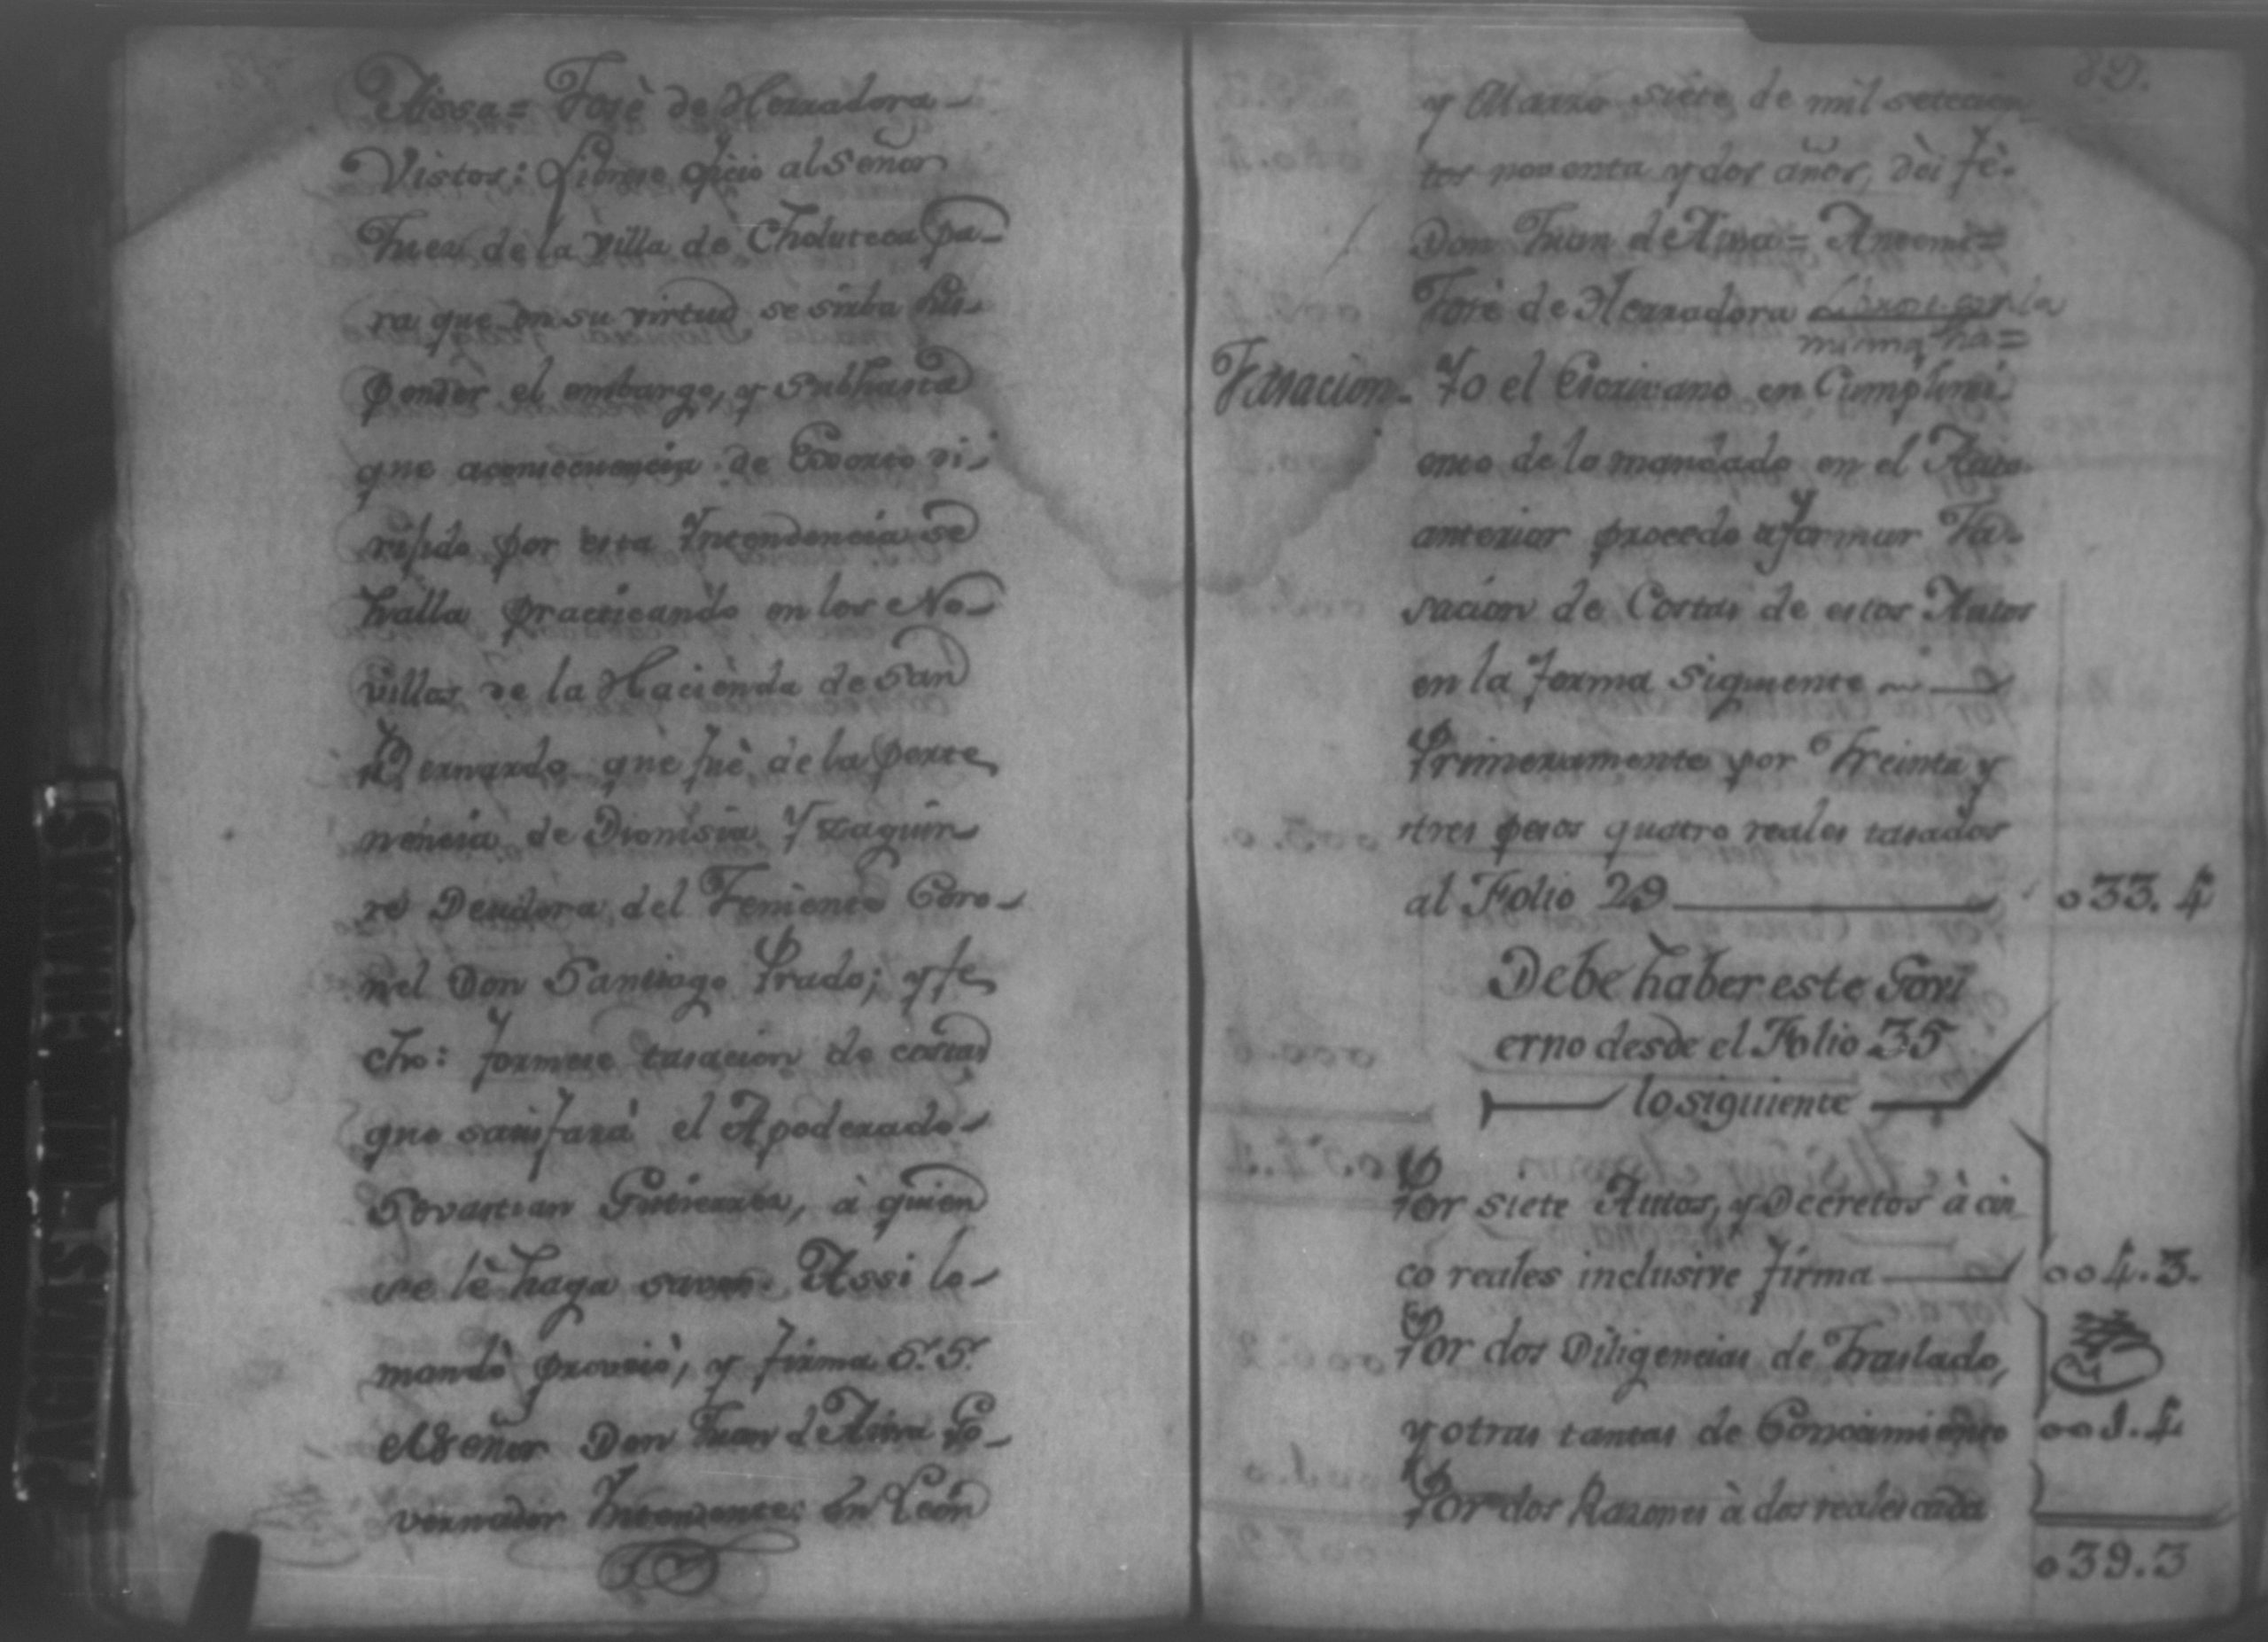 Aissa = José de Herradora
Vistos: librese oficio al Señor
Juez de la Villa de Choluteca pa-
ra que en su virtud se sirba sus-
pender el embargo, y subhasta
que a consecuencia de Exorto di-
rijido por esta Intendencia se
halla practicando en los No-
villos de la Hacienda de San
Bernardo que fuè de la perte
nencia de Dionisia Yzaguir-
re Deudora del Teniente Coro-
nel Don Santiago Prado; y fe
cho: formese tasacion de costas
que satisfará el Apoderado
Sevastian Gutierrez, à quien
se le haga saver. Assi lo
mandò proveiò, y firma S.S.
el Señor Don Juan de Aissa Go-
vernador Intendente: En León
82.
y Marzo siete de mil setecien
tos noventa y dos años, dòi fè.
Don Juan de Aissa = Antemi =
José de Herradora
misma fha =
Tasacion. Yo el Escrivano en Cumplimi
ento de lo mandado en el Auto
anterior procedo a formar Ta-
sacion de Costas de estos Autos
en la forma siguiente
Primeramente por Treinta y
tres pesos quatro reales tasados
al Folio 29 033.4
Debe haber este Govi
erno desde el Folio 35
lo siguiente
Por siete Autos, y Decretos à cin
co reales inclusive firma 004.3.
Por dos Diligencias de Traslado,
y otras tantas de Conosimiento 001.4
Por dos Razones à dos reales cada
039.3